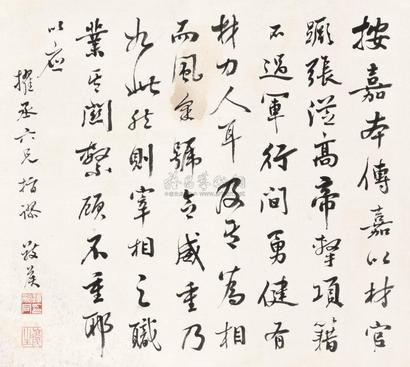 按嘉本傳嘉以材官
蹶張從高帝擊項籍
不過軍行間勇健有
材力人耳及其為相
而風采號令威重乃
如此然則宰相之職
業其關繫顧不重耶
以應
擢丞六兄指謬